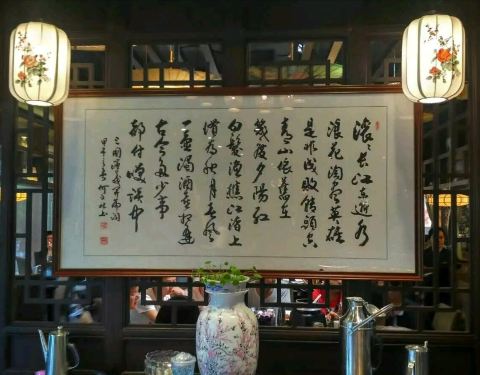 滚〻长江东逝水
浪花淘尽英雄
是非成败转头空
青山依旧在
几度夕阳红
白髮渔樵江渚上
惯看秋月春风
一壶浊酒喜相逢
古今多少事
都付笑谈中
三国演义开篇词